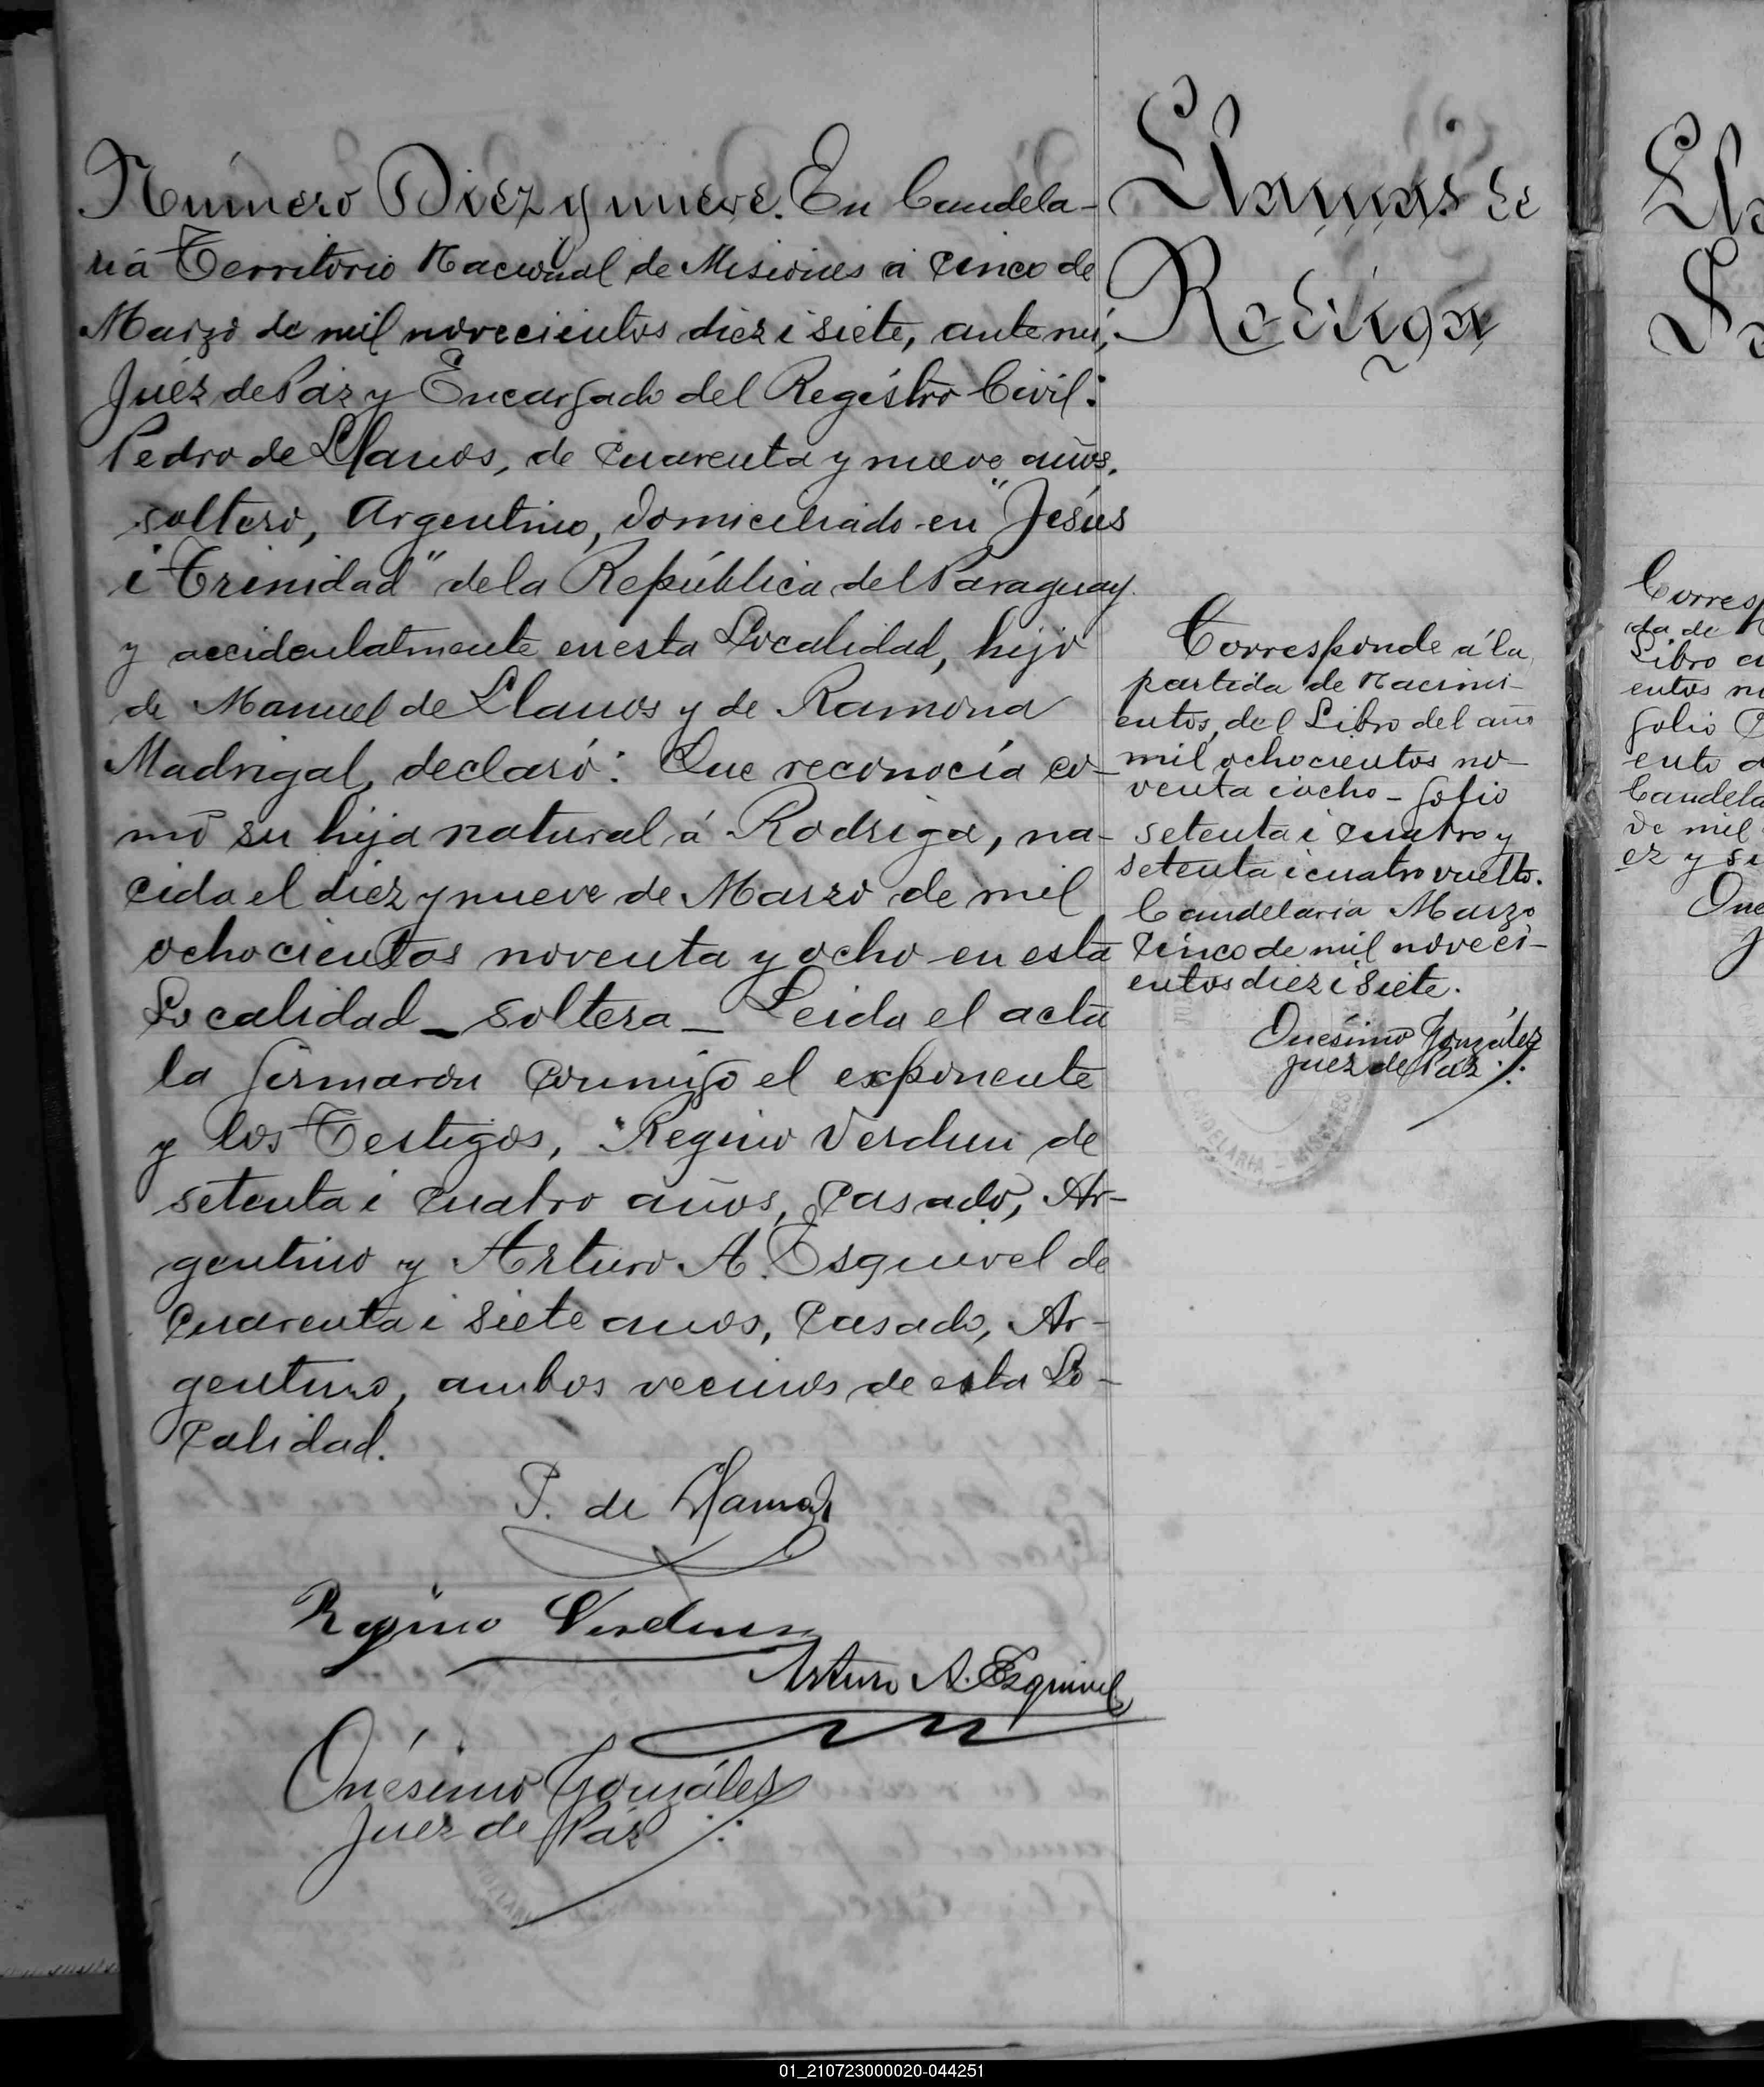 Número Diez y nueve. En Candela-
ria Territorio Nacional de Misiones á cinco de
Marzo de mil novecientos diez i siete, ante mí,
Juez de Páz y Encargado del Registro Civil:
Pedro de Llanos, de cuarenta y nueve años,
soltero, Argentino, domiciliado en "Jesús
i Trinidad" de la República del Paraguay
y accidentalmente en esta Localidad, hijo
de Manuel de Llanos y de Ramona
Madrigal, declaró: Que reconocía co-
mo su hija natural á Rodriga, na-
cida el diez y nueve de Marzo de mil
ochocientos noventa y ocho en esta
Localidad _ soltera _ Leida el acta
la firmaron conmigo el exponente
y los Testigos, Regino Verdun de
setenta i cuatro años, casado, Ar-
gentino y Arturo A. Esquivel de
cuarenta i siete anos, casado, Ar-
gentino, ambos vecinos de esta Lo-
calidad.
P. de Llanos
Regino Verdun
Arturo A. Esquivel
Onésimo Gonzáles
Juez de Páz
Llanos de
Rodriga
Corresponde á la
partida de Nacimi-
entos, del Libro del año
mil ochocientos no-
venta i ocho - folio
setenta i cuatro y
setenta i cuatro vuelto.
Candelaria Marzo
cinco de mil noveci-
entos diez i siete.
Onésimo González
Juez de Páz
CANDELARIA - MISIONES
Corresp
da de
Libro
entos
folio
ento
Candela
de mil
ez y si
One
01_210723000020-044251